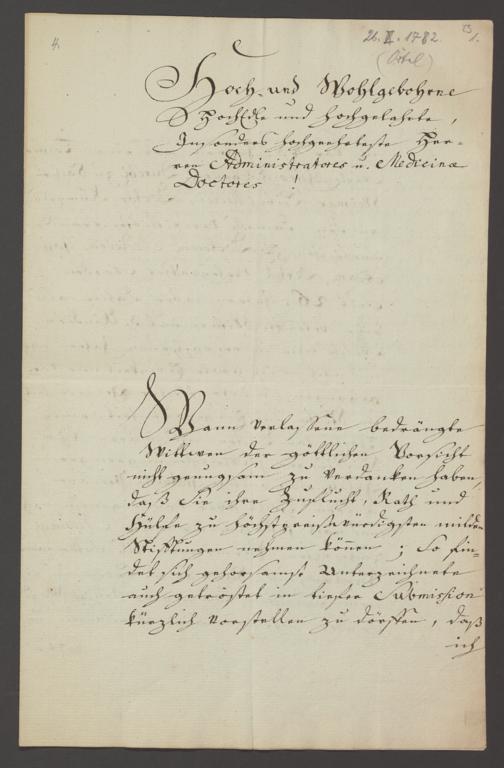 4.
26. II. 1782.
1.
Hoch- und Wohlgebohrne
HochEdle und Hochgelahrte,
Insonders Hochgeehrteste Her-
ren Administratores u. Medicinæ
Doctores!
Wann verlassene bedrängte
Wittwen der göttlichen Vorsicht
nicht genugsam zu verdanken haben,
daß Sie ihre Zuflucht, Rath und
Hülfe zu höchstpreißwürdigsten milden
Stifftungen nehmen können; So fin-
det sich gehorsamst Unterzeichnete
auch getröstet in tiefer Submission
kürzlich vorstellen zu dörffen, daß
ich